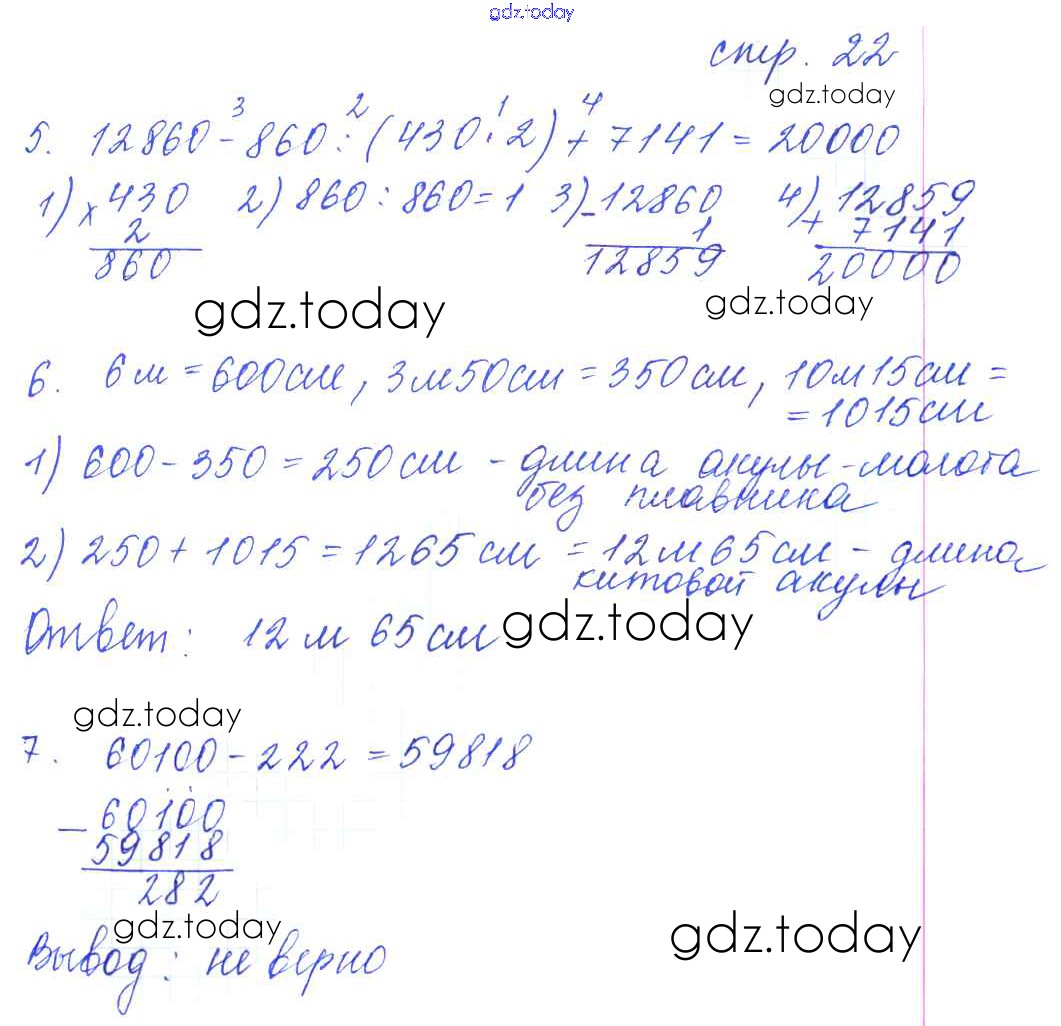 gdz.today
стр. 22
gdz.today
3 2 1 4
5. 12860 - 860 : (430 · 2) + 7141 = 20000
1) × 430 2) 860 : 860 = 1 3) - 12860 4) + 12859
2 1 7141
860 12859 20000
gdz.today gdz.today
6. 6 м = 600 см, 3 м 50 см = 350 см, 10 м 15 см =
= 1015 см
1) 600 - 350 = 250 см - длина акулы-молота
без плавника
2) 250 + 1015 = 1265 см = 12 м 65 см - длина
китовой акулы
Ответ: 12 м 65 см gdz.today
gdz.today
7. 60100 - 222 = 59818
- 60100
59818
282
gdz.today gdz.today
Вывод: не верно